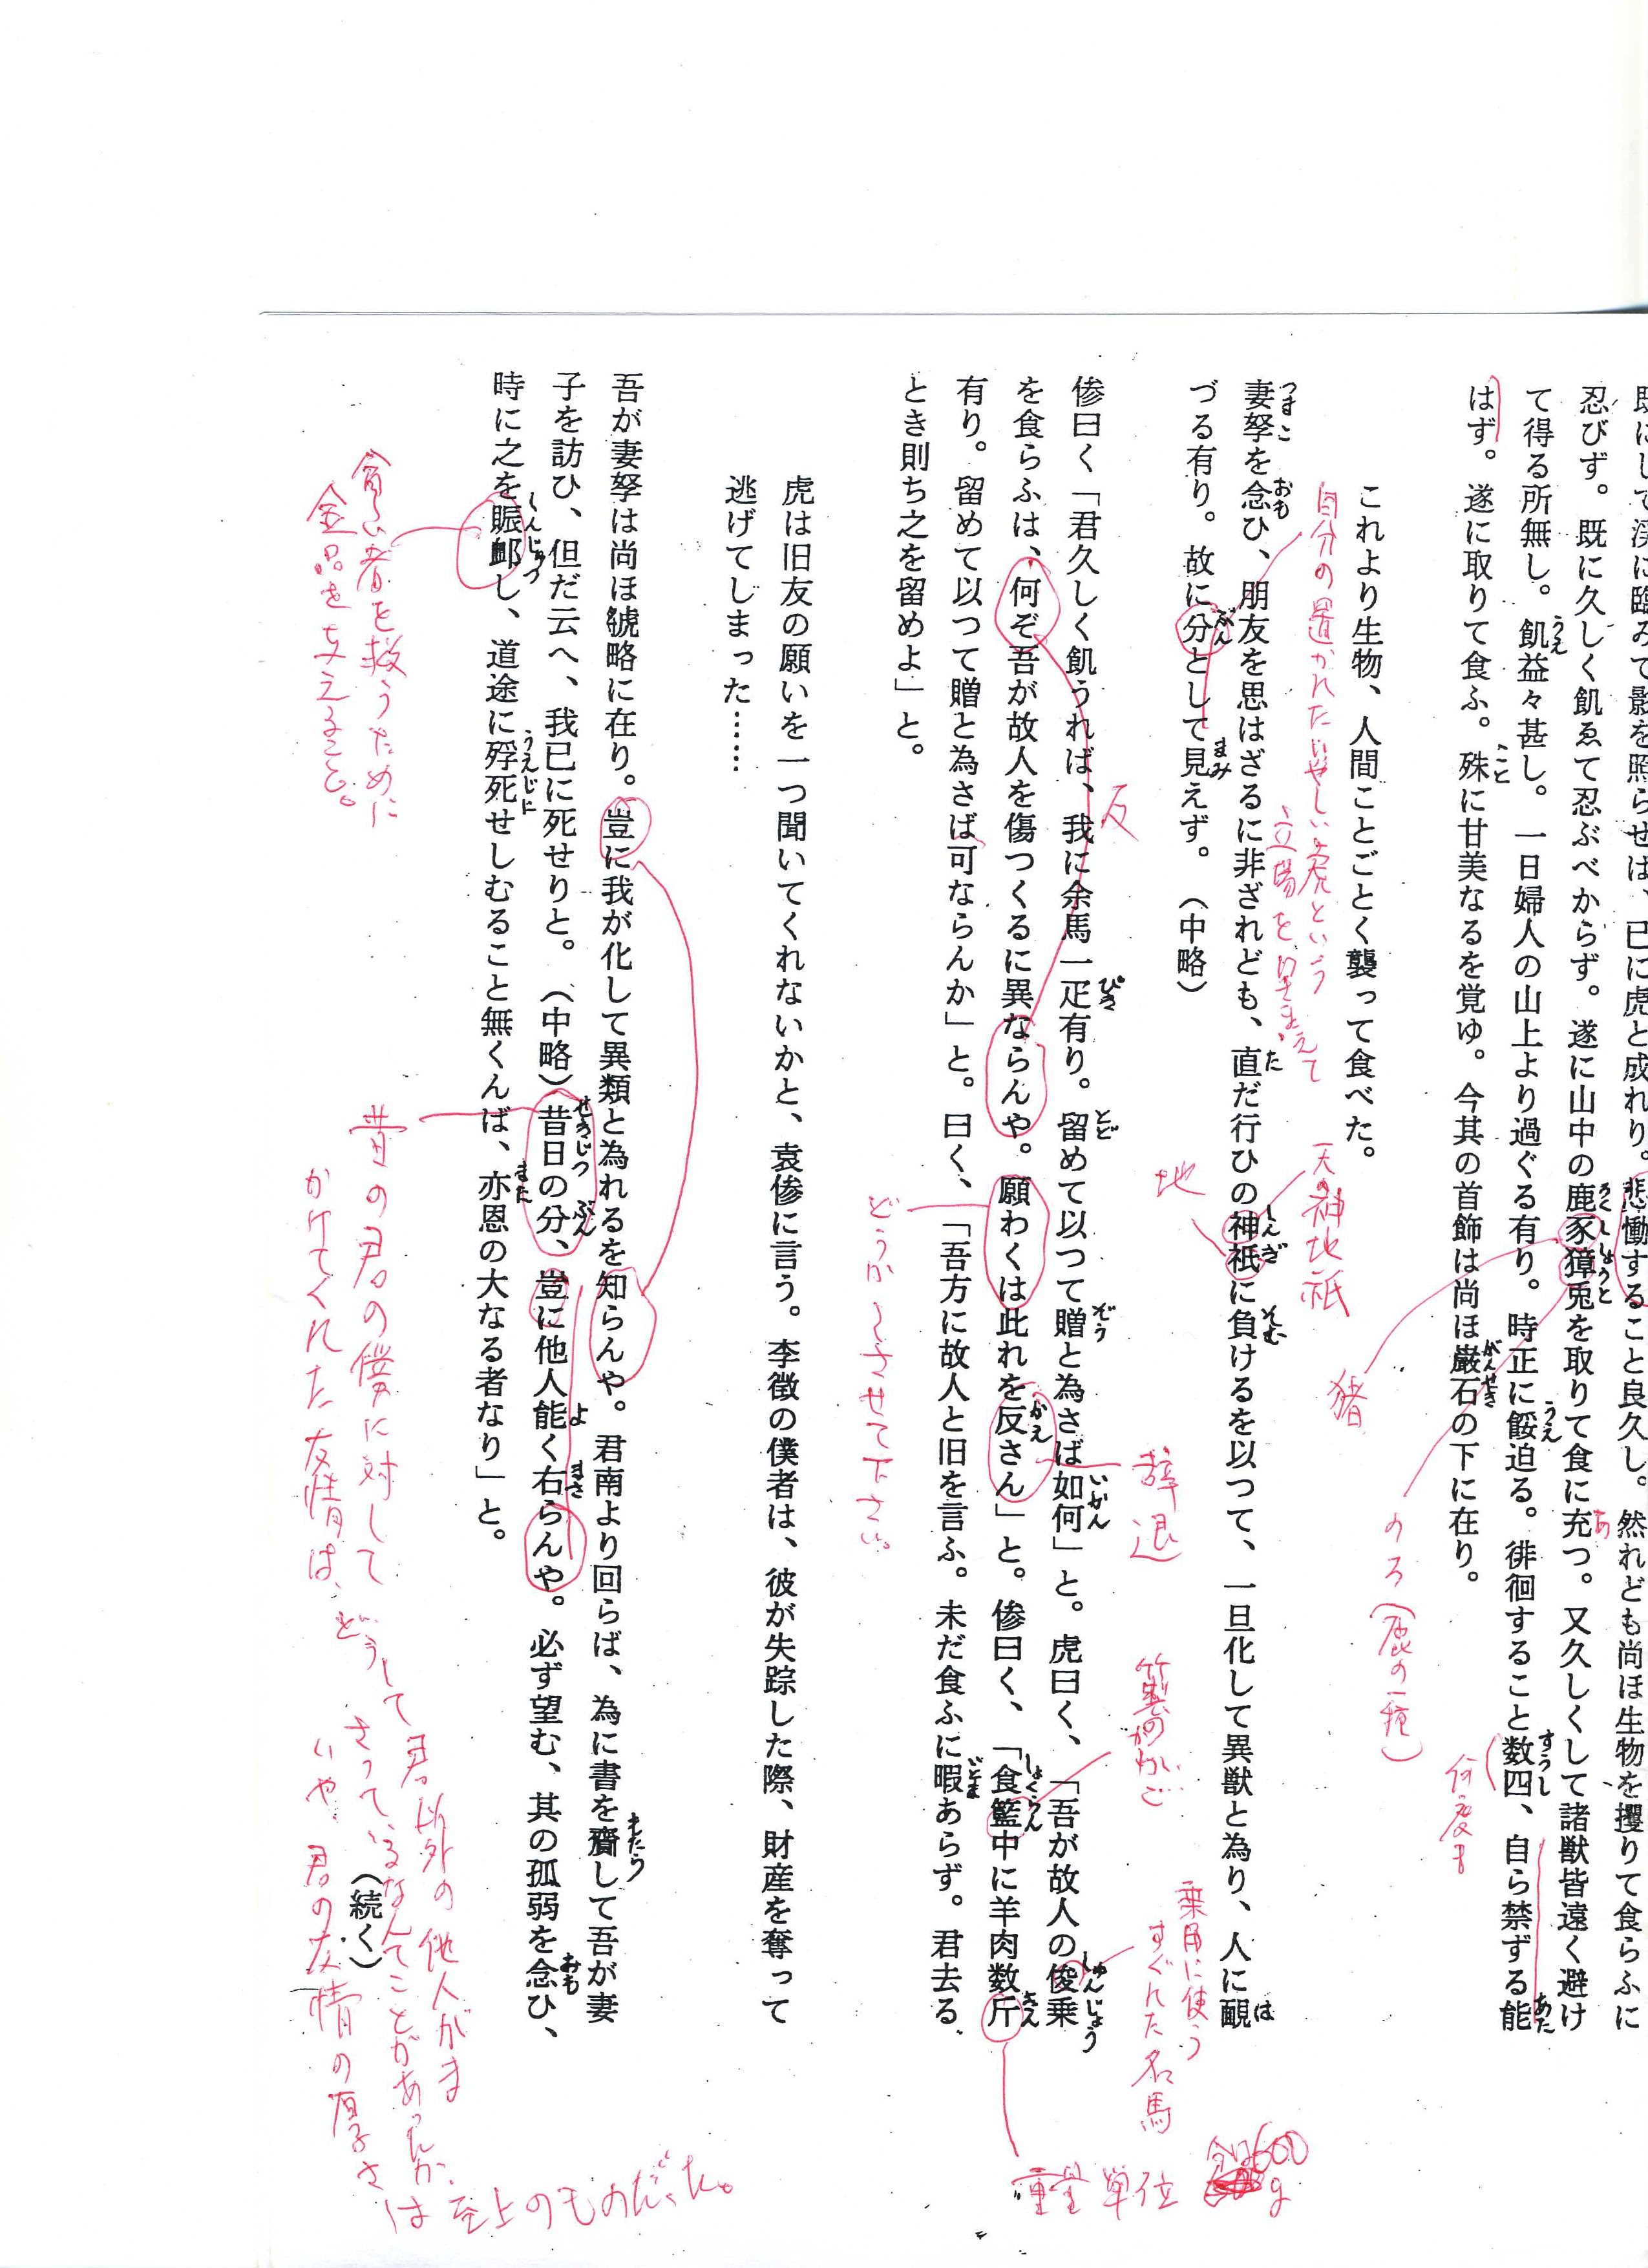 既にして渓に臨みて影を照らせば、已に虎と成れり。悲慟すること良久し。然れども尚ほ生物を攫りて食らふに
忍びず。既に久しく飢ゑて忍ぶべからず。遂に山中の鹿豕獐兎を取りて食に充つ。又久しくして諸獣皆遠く避け
ろくししょうと
あ
て得る所無し。飢益々甚し。一日婦人の山上より過ぐる有り。時正に餒迫る。徘徊すること数四、自ら禁ずる能
うえ
うえ
すうし
あた
はず。遂に取りて食ふ。殊に甘美なるを覚ゆ。今其の首飾は尚ほ巌石の下に在り。
こと
がんせき
何度も
のろ(鹿の一種)
猪
これより生物、人間ことごとく襲って食べた。
天の神地祇
地
自分の置かれたいやしい虎という
立場を呈まえて
妻孥を念ひ、朋友を思はざるに非ざれども、直だ行ひの神祇に負けるを以つて、一旦化して異獣と為り、人に靦
つまこ
おも
た
しんぎ
そむ
は
づる有り。故に分として見えず。(中略)
ぶん
まみ
反
辞退
竹製のかご
乗用に使う
すぐれた名馬
傪曰く「君久しく飢うれば、我に余馬一疋有り。留めて以つて贈と為さば如何」と。虎曰く、「吾が故人の俊乗
ぴき
とど
ぞう
いかん
しゅんじょう
を食らふは、何ぞ吾が故人を傷つくるに異ならんや。願わくは此れを反さん」と。傪曰く、「食籃中に羊肉数斤
かえ
しょくらん
きん
重量単位
600g
有り。留めて以つて贈と為さば可ならんか」と。曰く、「吾方に故人と旧を言ふ。未だ食ふに暇あらず。君去る
いとま
とき則ち之を留めよ」と。
どうか〜させて下さい。
虎は旧友の願いを一つ聞いてくれないかと、袁傪に言う。李徴の僕者は、彼が失踪した際、財産を奪って
逃げてしまった……
吾が妻孥は尚ほ虢略に在り。豈に我が化して異類と為れるを知らんや。君南より回らば、為に書を齎して吾が妻
もたら
子を訪ひ、但だ云へ、我已に死せりと。(中略)昔日の分、豈に他人能く右らんや。必ず望む、其の孤弱を念ひ、
せきじつ
ぶん
よ
まさ
おも
時に之を賑卹し、道途に殍死せしむること無くんば、亦恩の大なる者なり」と。
しんじゅつ
うえじに
また
貧しい者を救うために
金品を与えること。
昔の君の僕に対して
かけてくれた友情は、どうして君以外の他人がま
さっているなんてことがあったか、
いや、君の友情の厚さは至上のものだった。
(続く)